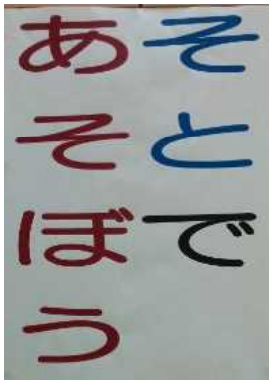 そとで
あそぼう